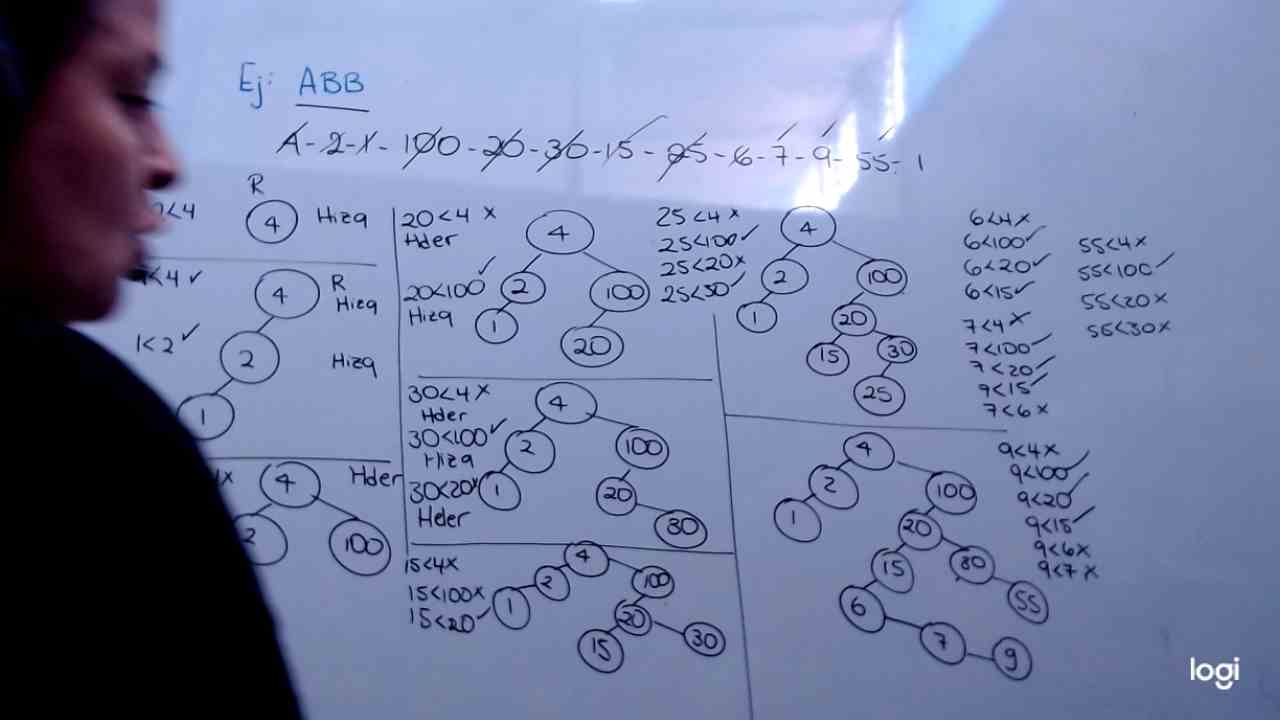 Ej: ABB
4-2-1-100-20-30-15-25-6-7-9-55-1
R
<4
4
Hizq
<4 ✓
4
R
Hizq
1<2 ✓
2
Hizq
1
x
4
Hder
2
100
20<4 x
Hder
4
20<100 ✓
2
100
Hizq
1
20
30<4 x
Hder
4
30<100 ✓
2
100
Hizq
30<20x
1
20
Hder
30
15<4x
4
15<100x
2
100
15<20 ✓
1
20
15
30
25<4 x
4
25<100 ✓
2
100
25<20x
25<30 ✓
1
20
15
30
25
6<4x
6<100 ✓
6<20 ✓
6<15 ✓
7<4 x
7<100 ✓
7<20 ✓
9<15 ✓
7<6 x
55<4x
55<100 ✓
55<20x
55<30x
4
2
100
1
20
15
30
6
55
7
9
9<4x
9<100 ✓
9<20 ✓
9<15 ✓
9<6x
9<7 x
logi